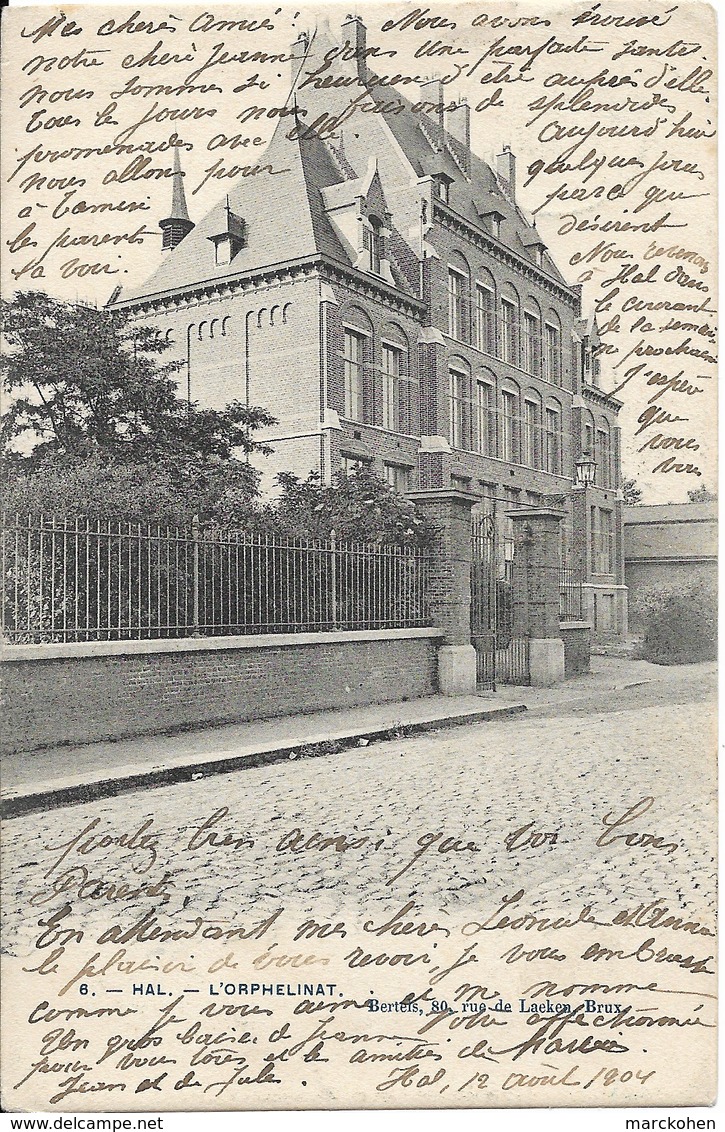 Mes cherès Amiés! Nous avons trouvé
notre cherè Jeanne dans une parfaite santé
nous sommes si heureuse d'être auprès d'elle
tous les jours nous faisons de splendides
promenades avec elle. Aujourd'hui
nous allons pour quelques jours
à Tamini parce que
les parents désirent
la voir. Nous
à Hal dans
le courant
de la semaine
prochaine
J'espère
que
vous
vous
portez bien ainsi que vos bons
Parents,
En attendant mes cherès Leonie et Anna
le plaisir de vous revoir, je vous embrasse
6. — HAL. — L'ORPHELINAT.
Bertels, 80, rue de Laeken, Brux.
comme je vous aime et me nomme
Votre affectionnée
Un gros baiser de Jeanne
pour vous toutes et les amitiés de
Jean et de Jule.
Hal, 12 août 1904
marckohen